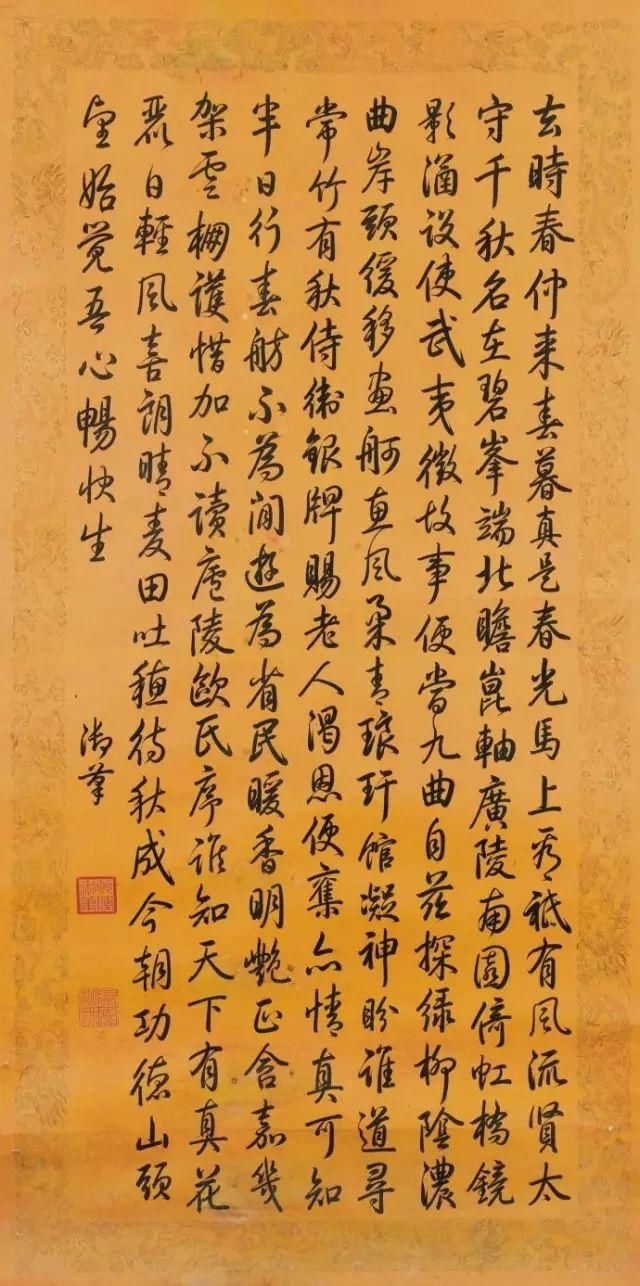 去時春仲来春暮真是春光馬上看祗有風流賢太
守千秋名在碧峯端北瞻崑軸廣陵南園倚虹橋鏡
影涵設使武夷徵故事便當九曲自茲探綠柳陰濃
曲岸頭緩移畫舸惠風柔青琅玕館凝神盼誰道尋
常竹有秋侍衛銀牌賜老人渴恩便奮亦情真可知
半日行春舫不為閒遊為省民暖香明艷正含嘉幾
架雲棚護惜加不讀廬陵歐氏序誰知天下有真花
麗日輕風喜朗晴麥田吐穗待秋成今朝功德山頭
望始覺吾心暢快生
御筆